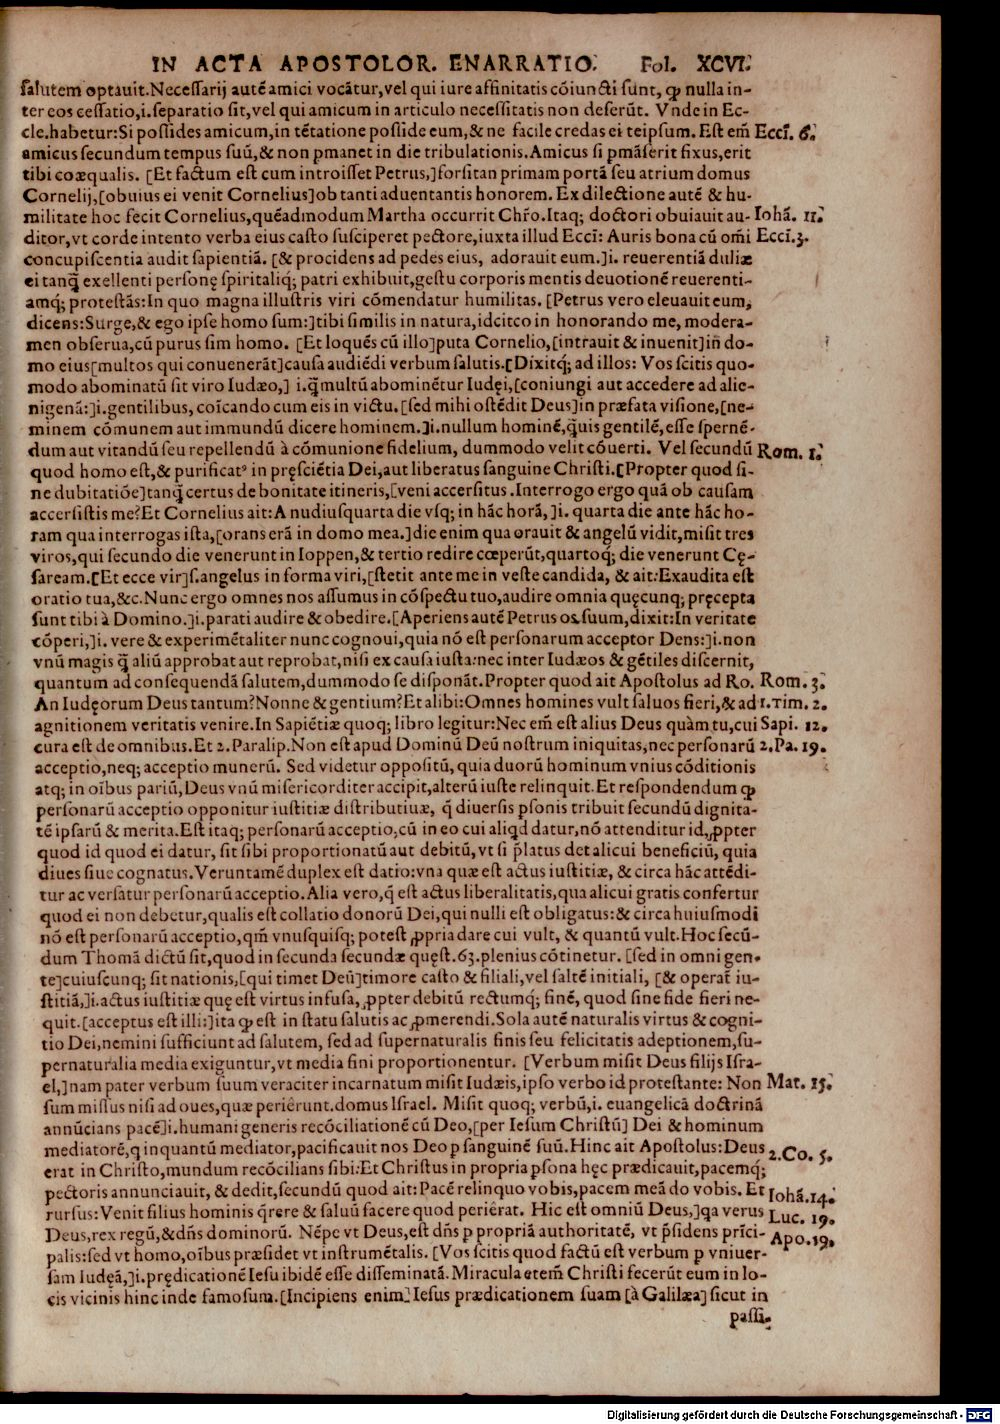 IN ACTA APOSTOLOR. ENARRATIO. Fol. XCVI.
salutem optauit. Necessarij autẽ amici vocãtur, vel qui iure affinitatis cõiuncti sunt, ꝙ nulla in-
ter eos cessatio, i. separatio sit, vel qui amicum in articulo necessitatis non deserũt. Vnde in Ec-
cle. habetur: Si possides amicum, in tẽtatione posside eum, & ne facile credas ei teipsum. Est em̃ Eccĩ. 6.
amicus secundum tempus suũ, & non ꝑmanet in die tribulationis. Amicus si ꝑmãserit fixus, erit
tibi coæqualis. [Et factum est cum introisset Petrus,] forsitan primam portã seu atrium domus
Cornelij, [obuius ei venit Cornelius] ob tanti aduentantis honorem. Ex dilectione autẽ & hu-
militate hoc fecit Cornelius, quẽadmodum Martha occurrit Chr̃o. Itaq; doctori obuiauit au- Iohã. 11.
ditor, vt corde intento verba eius casto susciperet pectore, iuxta illud Eccĩ: Auris bona cũ om̃i Eccĩ. 3.
concupiscentia audit sapientiã. [& procidens ad pedes eius, adorauit eum.] i. reuerentiã duliæ
ei tanq̃ exellenti personę spiritaliq́; patri exhibuit, gestu corporis mentis deuotionẽ reuerenti-
amq́; protestãs: In quo magna illustris viri cõmendatur humilitas. [Petrus vero eleuauit eum,
dicens: Surge, & ego ipse homo sum:] tibi similis in natura, idcitco in honorando me, modera-
men obserua, cũ purus sim homo. [Et loquẽs cũ illo] puta Cornelio, [intrauit & inuenit] iñ do-
mo eius [multos qui conuenerãt] causa audiẽdi verbum salutis. [Dixitq́; ad illos: Vos scitis quo-
modo abominatũ sit viro Iudæo,] i. q̃ multũ abominẽtur Iudęi, [coniungi aut accedere ad alie-
nigenã:] i. gentilibus, coĩcando cum eis in victu. [sed mihi ostẽdit Deus] in præfata visione, [ne-
minem cõmunem aut immundũ dicere hominem.] i. nullum hominẽ, q̃uis gentilẽ, esse spernẽ-
dum aut vitandũ seu repellendũ à cõmunione fidelium, dummodo velit cõuerti. Vel secundũ Rom. 1.
quod homo est, & purificatꝰ in pręsciẽtia Dei, aut liberatus sanguine Christi. [Propter quod si-
ne dubitatiõe] tanq̃ certus de bonitate itineris, [veni accersitus. Interrogo ergo quã ob causam
accersistis me? Et Cornelius ait: A nudiusquarta die vsq; in hãc horã,] i. quarta die ante hãc ho-
ram qua interrogas ista, [orans erã in domo mea.] die enim qua orauit & angelũ vidit, misit tres
viros, qui secundo die venerunt in Ioppen, & tertio redire cœperũt, quartoq́; die venerunt Cę-
saream. [Et ecce vir] s. angelus in forma viri, [stetit ante me in veste candida, & ait: Exaudita est
oratio tua, &c. Nunc ergo omnes nos assumus in cõspectu tuo, audire omnia quęcunq; pręcepta
sunt tibi à Domino.] i. parati audire & obedire. [Aperiens autẽ Petrus os suum, dixit: In veritate
cõperi,] i. vere & experimẽtaliter nunc cognoui, quia nõ est personarum acceptor Dens:] i. non
vnũ magis q̃ aliũ approbat aut reprobat, nisi ex causa iusta: nec inter Iudæos & gẽtiles discernit,
quantum ad consequendã salutem, dummodo se disponãt. Propter quod ait Apostolus ad Ro. Rom. 3.
An Iudęorum Deus tantum? Nonne & gentium? Et alibi: Omnes homines vult saluos fieri, & ad 1. Tim. 2.
agnitionem veritatis venire. In Sapiẽtiæ quoq; libro legitur: Nec em̃ est alius Deus quàm tu, cui Sapi. 12.
cura est de omnibus. Et 2. Paralip. Non est apud Dominũ Deũ nostrum iniquitas, nec personarũ 2. Pa. 19.
acceptio, neq; acceptio munerũ. Sed videtur oppositũ, quia duorũ hominum vnius cõditionis
atq; in oĩbus pariũ, Deus vnũ misericorditer accipit, alterũ iuste relinquit. Et respondendum ꝙ
personarũ acceptio opponitur iustitiæ distributiuæ, q̃ diuersis ꝑsonis tribuit secundũ dignita-
tẽ ipsarũ & merita. Est itaq; personarũ acceptio, cũ in eo cui aliqd datur, nõ attenditur id, ꝓpter
quod id quod ei datur, sit sibi proportionatũ aut debitũ, vt si p̃latus det alicui beneficiũ, quia
diues siue cognatus. Veruntamẽ duplex est datio: vna quæ est actus iustitiæ, & circa hãc attẽdi-
tur ac versatur personarũ acceptio. Alia vero, q̃ est actus liberalitatis, qua alicui gratis confertur
quod ei non debetur, qualis est collatio donorũ Dei, qui nulli est obligatus: & circa huiusmodi
nõ est personarũ acceptio, qm̃ vnusquisq; potest ꝓpria dare cui vult, & quantũ vult. Hoc secũ-
dum Thomã dictũ sit, quod in secunda secundæ quęst. 63. plenius cõtinetur. [sed in omni gen-
te] cuiuscunq; sit nationis, [qui timet Deũ] timore casto & filiali, vel saltẽ initiali, [& operat̃ iu-
stitiã,] i. actus iustitiæ quę est virtus infusa, ꝓpter debitũ rectumq́; finẽ, quod sine fide fieri ne-
quit. [acceptus est illi:] ita ꝙ est in statu salutis ac ꝓmerendi. Sola autẽ naturalis virtus & cogni-
tio Dei, nemini sufficiunt ad salutem, sed ad supernaturalis finis seu felicitatis adeptionem, su-
pernaturalia media exiguntur, vt media fini proportionentur. [Verbum misit Deus filijs Isra-
el,] nam pater verbum suum veraciter incarnatum misit Iudæis, ipso verbo id protestante: Non Mat. 15.
sum missus nisi ad oues, quæ periêrunt. domus Israel. Misit quoq; verbũ, i. euangelicã doctrinã
annũcians pacẽ] i. humani generis recõciliationẽ cũ Deo, [per Iesum Christũ] Dei & hominum
mediatorẽ, q inquantũ mediator, pacificauit nos Deo ꝑ sanguinẽ suũ. Hinc ait Apostolus: Deus 2. Co. 5.
erat in Christo, mundum recõcilians sibi: Et Christus in propria ꝑsona hęc prædicauit, pacemq́;
pectoris annunciauit, & dedit, secundũ quod ait: Pacẽ relinquo vobis, pacem meã do vobis. Et Iohã. 14.
rursus: Venit filius hominis q̃rere & saluũ facere quod periêrat. Hic est omniũ Deus,] qa verus Luc. 19.
Deus, rex regũ, & dñs dominorũ. Nẽpe vt Deus, est dñs ꝑ propriã authoritatẽ, vt p̃sidens prĩci- Apo. 19.
palis: sed vt homo, oĩbus præsidet vt instrumẽtalis. [Vos scitis quod factũ est verbum ꝑ vniuer-
sam Iudęã,] i. prędicationẽ Iesu ibidẽ esse disseminatã. Miracula etem̃ Christi fecerũt eum in lo-
cis vicinis hinc inde famosum. [Incipiens enim] Iesus prædicationem suam [à Galilæa] sicut in
passi-
Digitalisierung gefördert durch die Deutsche Forschungsgemeinschaft - DFG